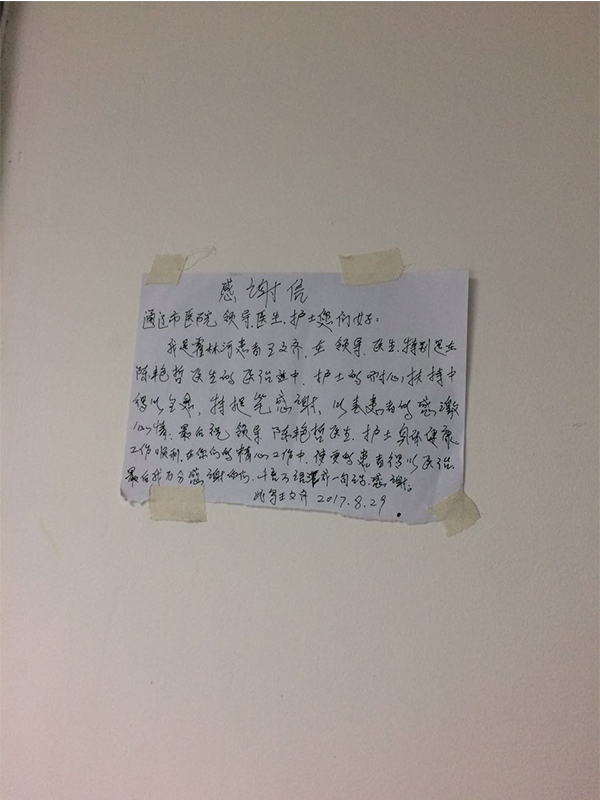 感谢信
通辽市医院领导医生、护士您们好：
我是霍林河患者王文齐，在领导、医生、特别是在
陈艳哲医生的医治过中、护士的耐心扶持中
得以全愈，特提笔感谢，以表患者的感激
心情、最后祝领导陈艳哲医生、护士身体健康
工作顺利，在你们的精心工作中，使更的患者得以医治
最后我万分感谢你们、千言万语汇成一句话、感谢。
王文齐 2017.8.29.